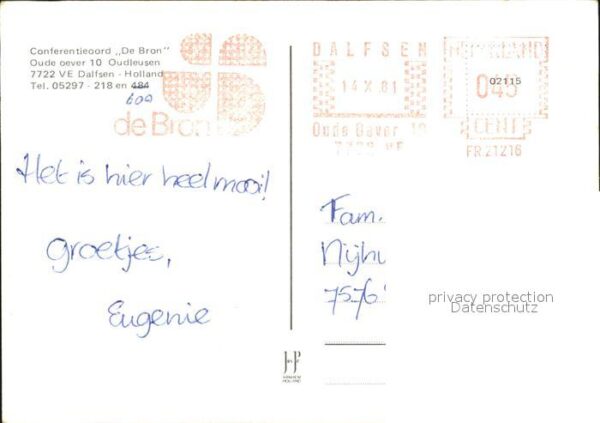 Conferentieoord „De Bron"
Oude oever 10 Oudleusen
7722 VE Dalfsen - Holland
Tel. 05297 - 218 en 484
600
de Bron
DALFSEN
14 X.81
Oude Oever 10
7722 VE
NEDERLAND
02115
045
CENT
FR 21216
Het is hier heel mooi!
groetjes,
Eugenie
Fam.
7576
privacy protection
Datenschutz
JosP